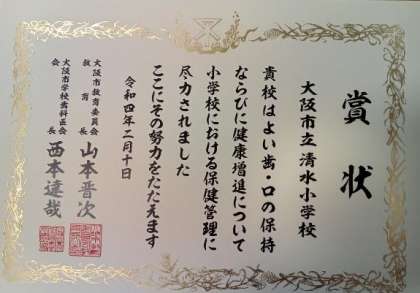 賞状
大阪市立清水小学校
貴校はよい歯・口の保持
ならびに健康増進について
小学校における保健管理に
尽力されました
ここにその努力をたたえます
令和四年二月十日
大阪市教育委員会
教育長 山本晋次
大阪市学校歯科医会
会長 西本達哉